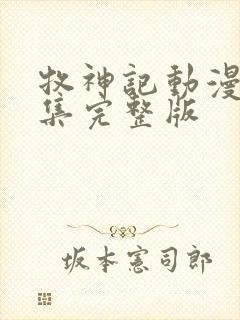 牧神記動漫
集完整版
坂本憲司郎